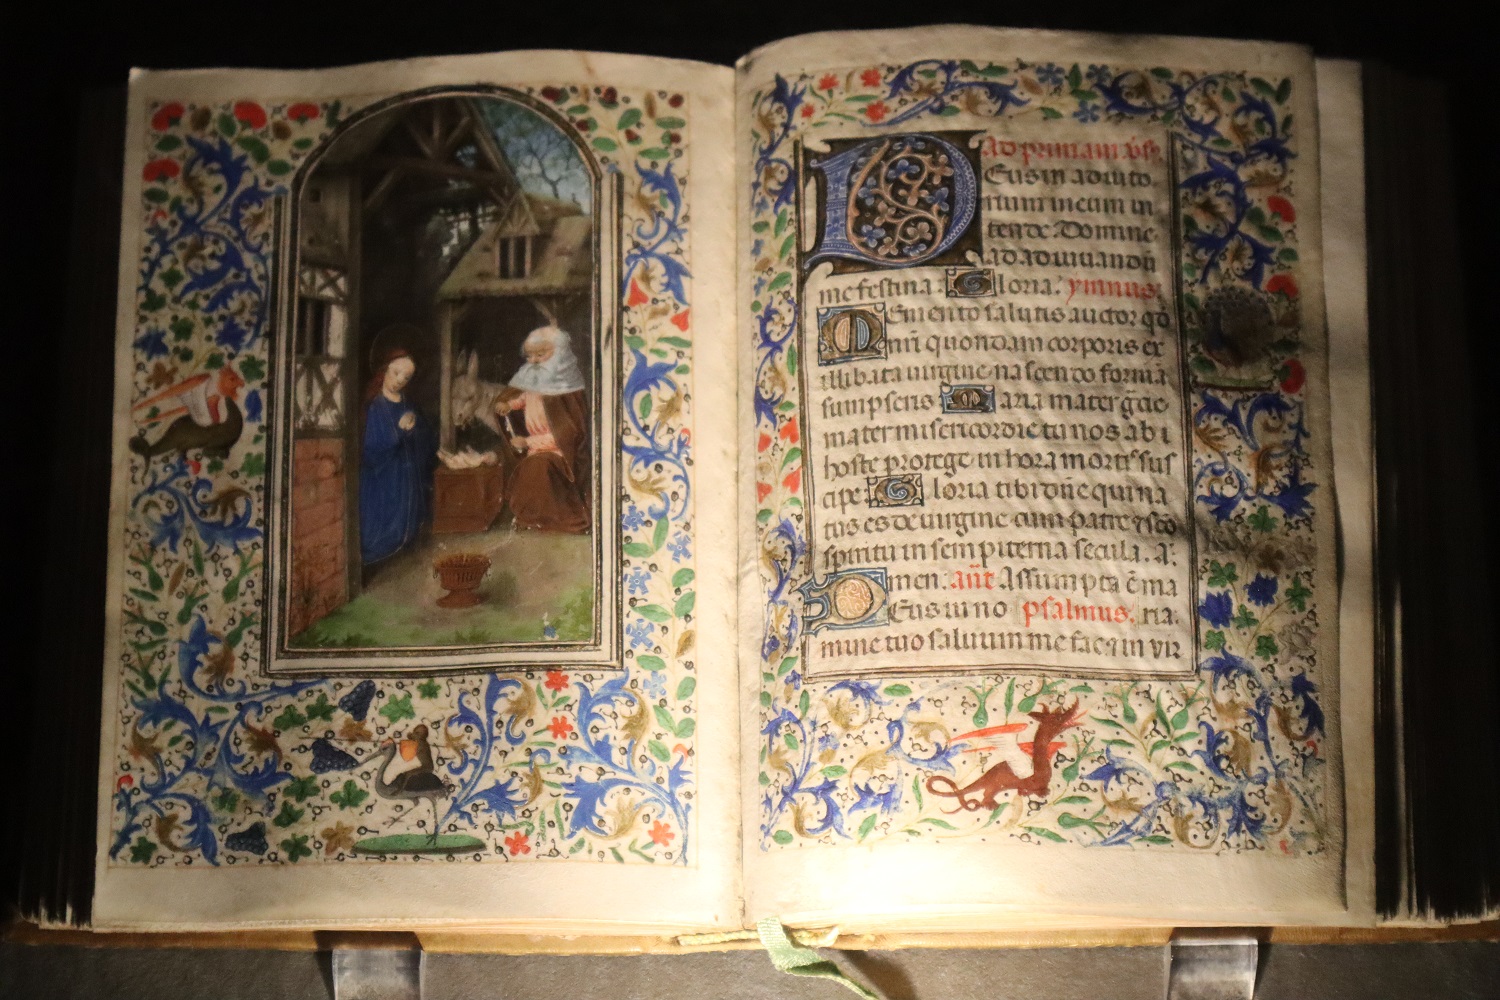 Ad primam v̄s̄.
Eus in adiuto
rium meum in
tende Domine
ad adiuuandū
me festina. Gloria. ymnus.
Memento salutis auctor q̄d
nr̄i quondam corporis ex
illibata uirgine nascendo formā
sumpseris Maria mater gr̄cie
mater misericordie tu nos ab i
hoste protege in hora mortis sus
cipe Gloria tibi dn̄e qui na
tus es de uirgine cum patre et sc̄o
spiritu in sempiterna secula. A.
men. an̄t Assumpta ē ma
Deus in no psalmus. ria.
mine tuo saluum me fac et in vir